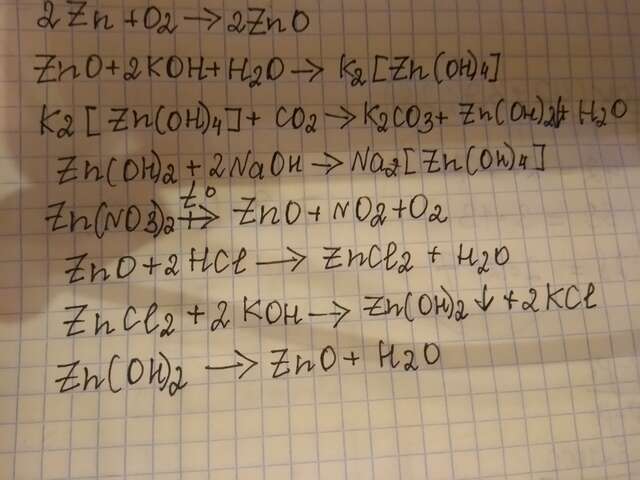 2Zn + O2 → 2ZnO
ZnO + 2KOH + H2O → K2[Zn(OH)4]
K2[Zn(OH)4] + CO2 → K2CO3 + Zn(OH)2↓ + H2O
Zn(OH)2 + 2NaOH → Na2[Zn(OH)4]
Zn(NO3)2 t°→ ZnO + NO2 + O2
ZnO + 2HCl → ZnCl2 + H2O
ZnCl2 + 2KOH → Zn(OH)2↓ + 2KCl
Zn(OH)2 → ZnO + H2O